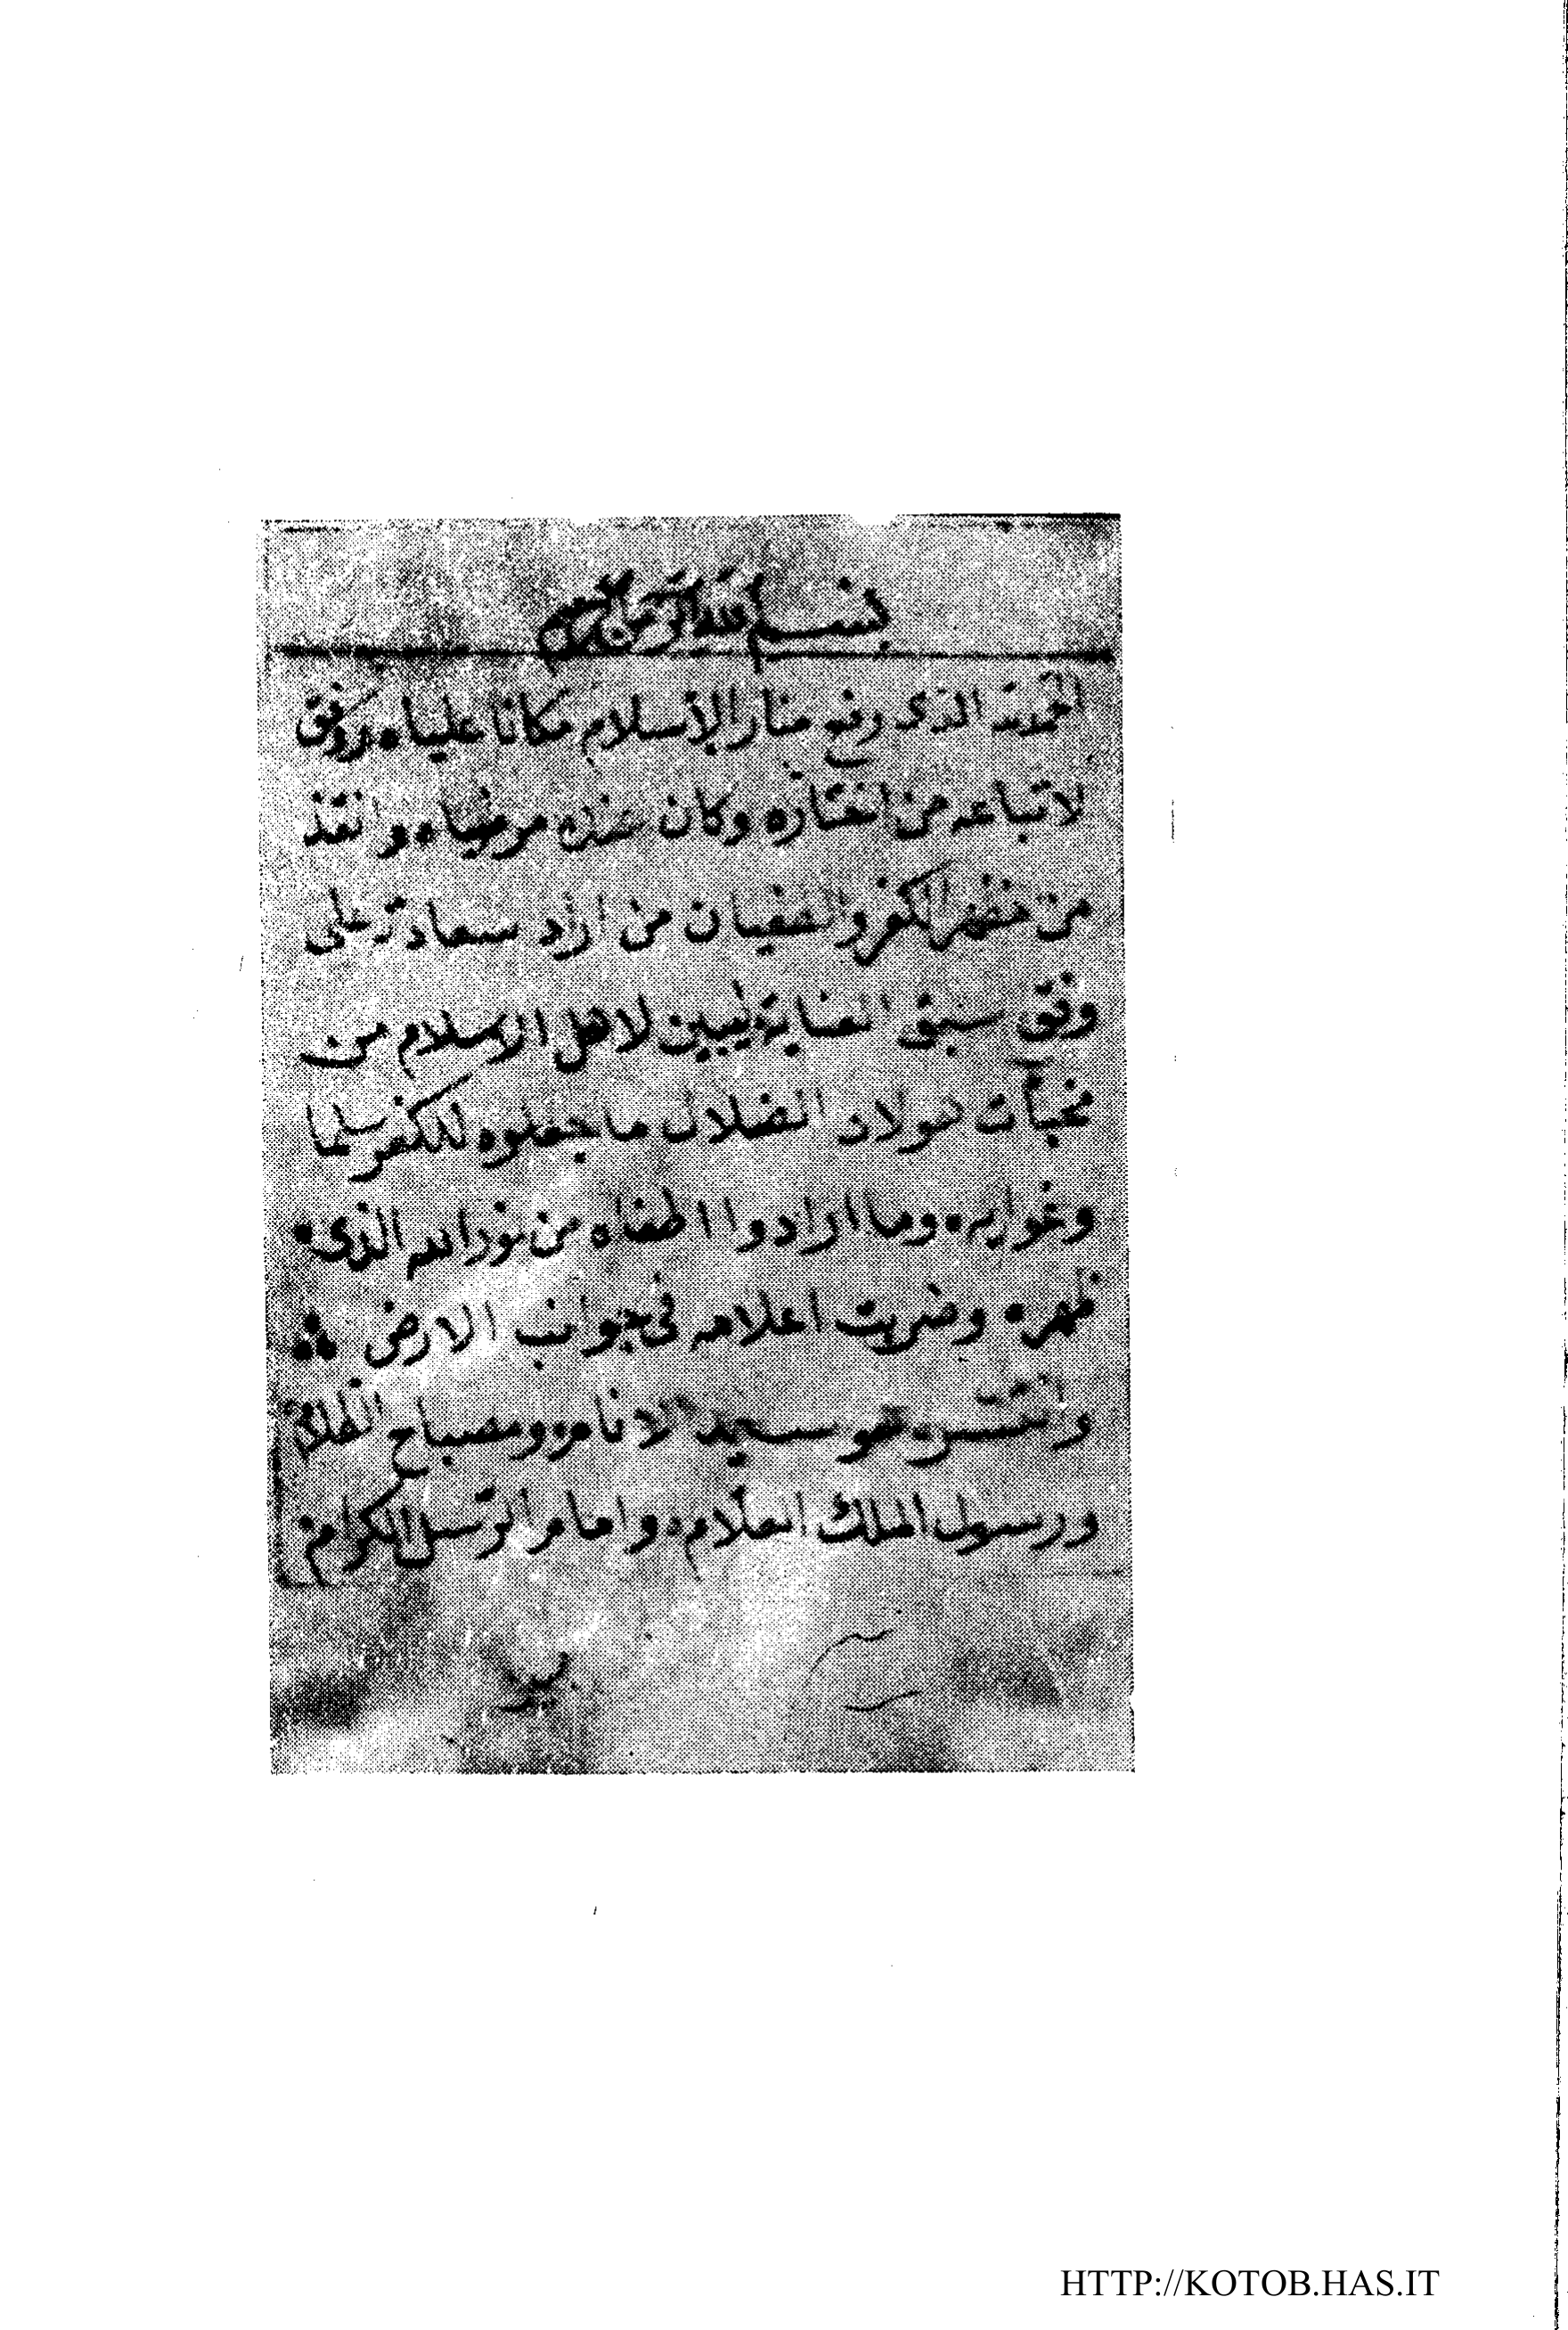 بسم الله الرحمن الرحيم
الحمد لله الذى رفع منار الإسلام مكانا عليا، ووفق
لاتباعه من اختاره وكان عنده مرضيا، وانقذ
من الكفر والطغيان من أراد سعادته على
وفق سبق العناية ليبين لاهل الاسلام من
مخبآت هولاء الضلال ما جعلوه للكفر سلما
وغواية، وما ارادوا اطفاه من نور الله الذى
ظهر، وضربت اعلامه فى جوانب الارض
وانتشر، هو سيد الانام، ومصباح الظلام
ورسول الملك العلام، وامام الرسل الكرام، من
HTTP://KOTOB.HAS.IT